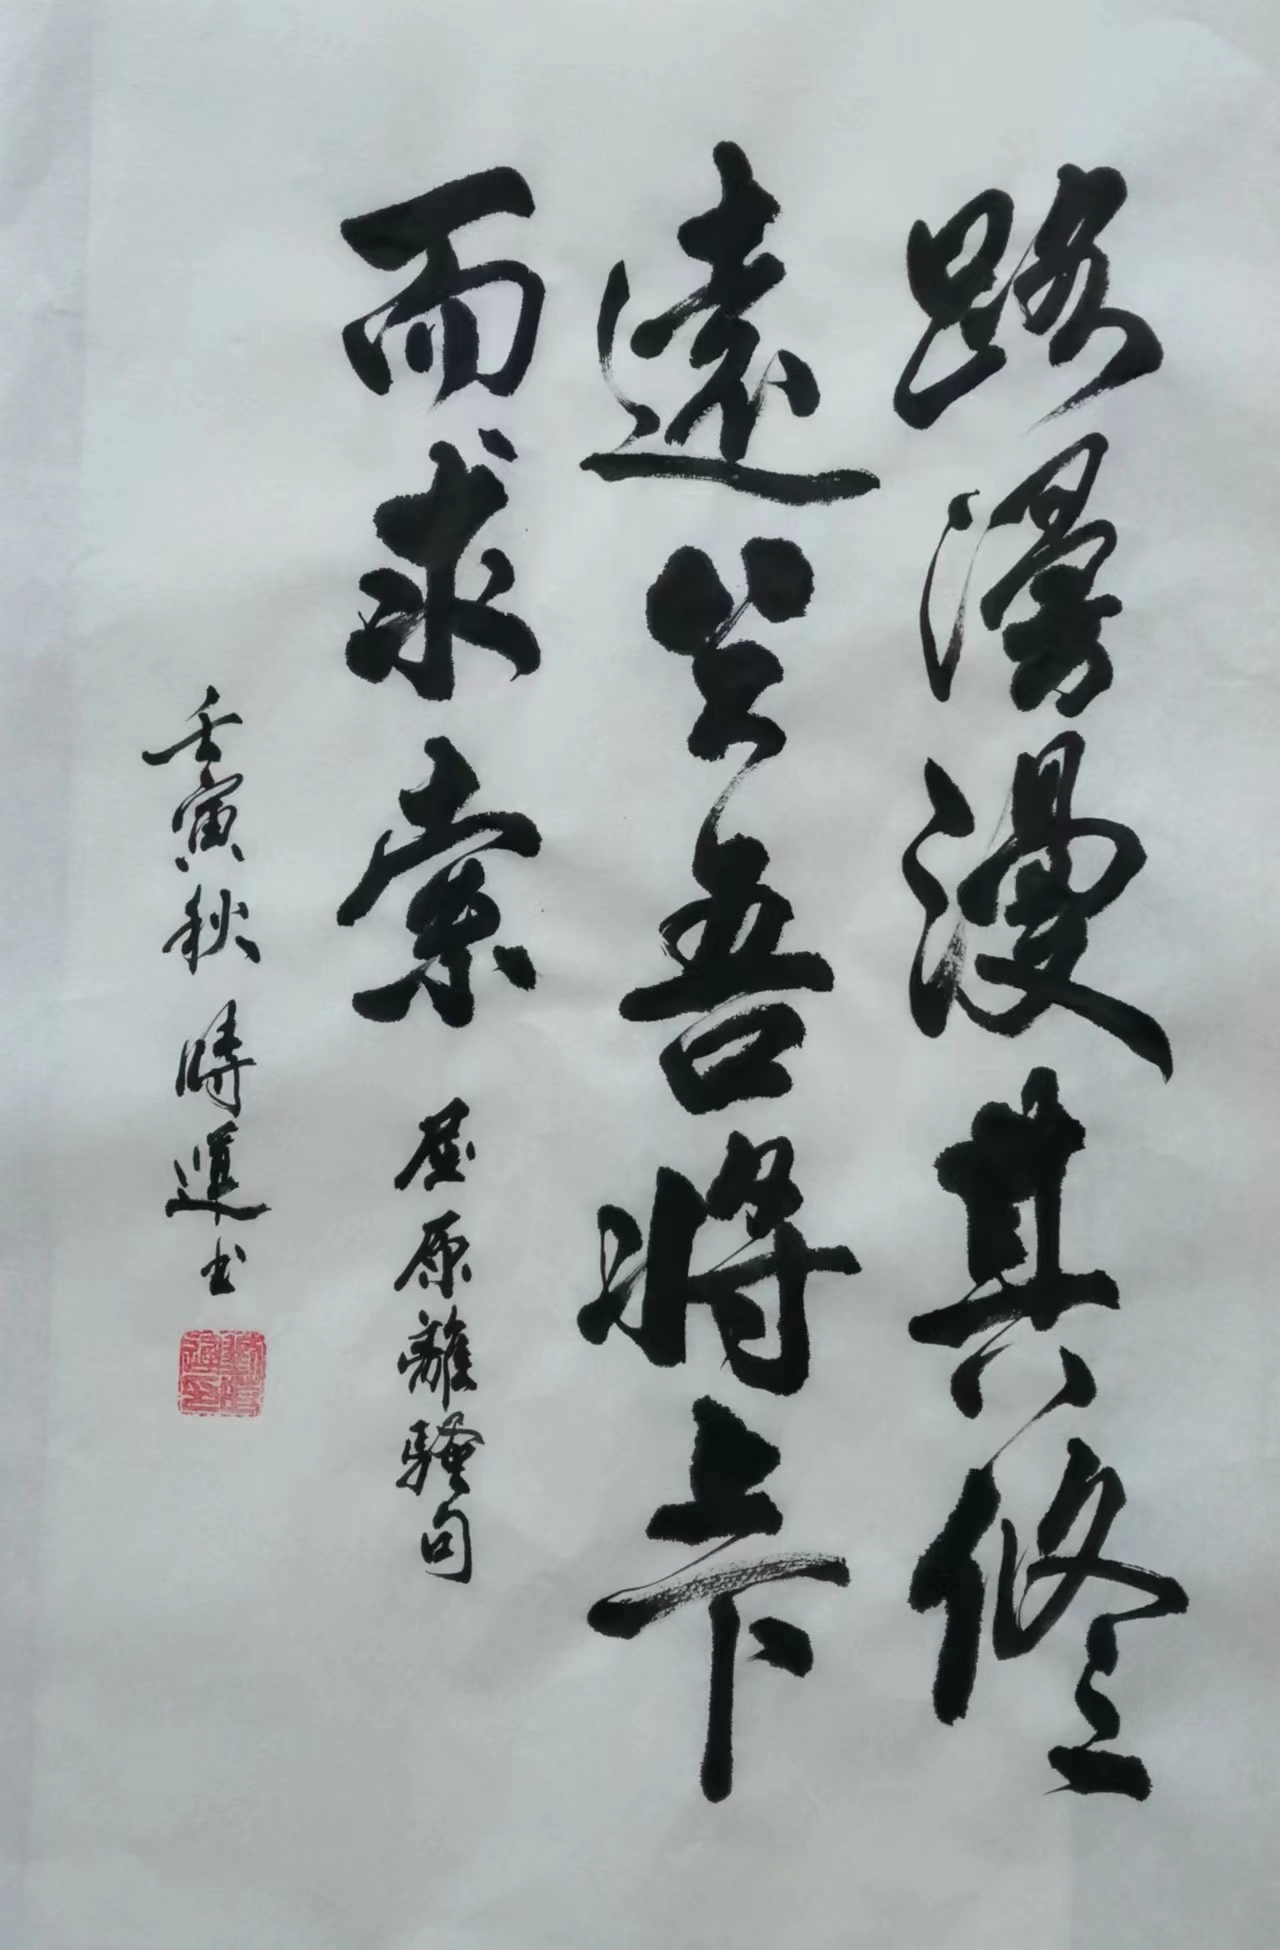 路漫漫其修
遠兮吾將上下
而求索 屈原離騷句
壬寅秋 時運书